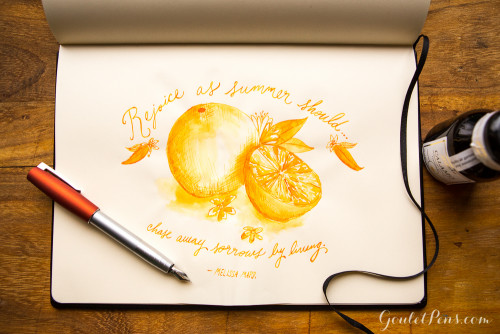 Rejoice as summer should...
chase away sorrows by living.
- MELISSA MARR
GouletPens.com